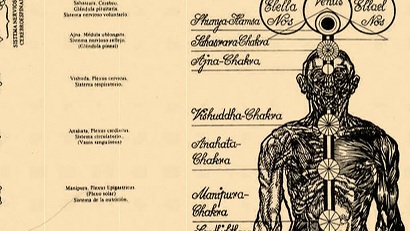 SISTEMA NERVIOSO
CEREBROESPINAL
Sahasrara, Cerebro,
Glándula pituitaria.
Sistema nervioso voluntario.
Ajna. Médula oblongata.
Sistema nervioso reflejo.
(Glándula pineal)
Vishuda, Plexus cervical.
Sistema respiratorio.
Anahata, Plexus cardíaco.
Sistema circulatorio.
(Vasos sanguíneos)
Manipura, Plexus Epigastricus
(Plexo solar)
Sistema de la nutrición.
Elella
Nos
Venus
Ellael
Nos
Shunya-Hamsa
Sahasrara-Chakra
Ajna-Chakra
Vishuddha-Chakra
Anahata-
Chakra
Manipura-
Chakra